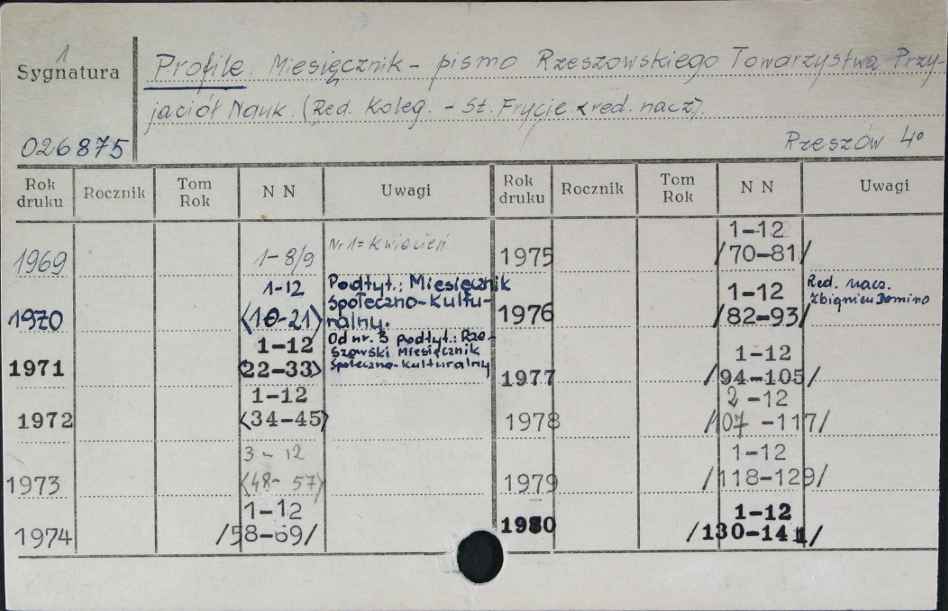 1
Sygnatura
Profile. Miesięcznik - pismo Rzeszowskiego Towarzystwa Przy-
jaciół Nauk. (Red. Koleg. - St. Frycie <red. nacz).
026875
Rzeszów 4°
Rok druku Rocznik Tom Rok N N Uwagi Rok druku Rocznik Tom Rok N N Uwagi
1969 1-8/9 Nr 1= Kwiecień
1970 1-12 <10-21> Podtyt.: Miesięcznik
Społeczno-Kultu-
ralny.
1971 1-12 <22-33> Od nr. 3 podtyt.: Rze-
szowski Miesięcznik
Społeczno-Kulturalny
1972 1-12 <34-45>
1973 3-12 <48-57>
1974 1-12 /58-69/
1975 1-12 /70-81/
1976 1-12 /82-93/ Red. nacz.
Zbigniew Domino
1977 1-12 /94-105/
1978 2-12 /107-117/
1979 1-12 /118-129/
1980 1-12 /130-141/